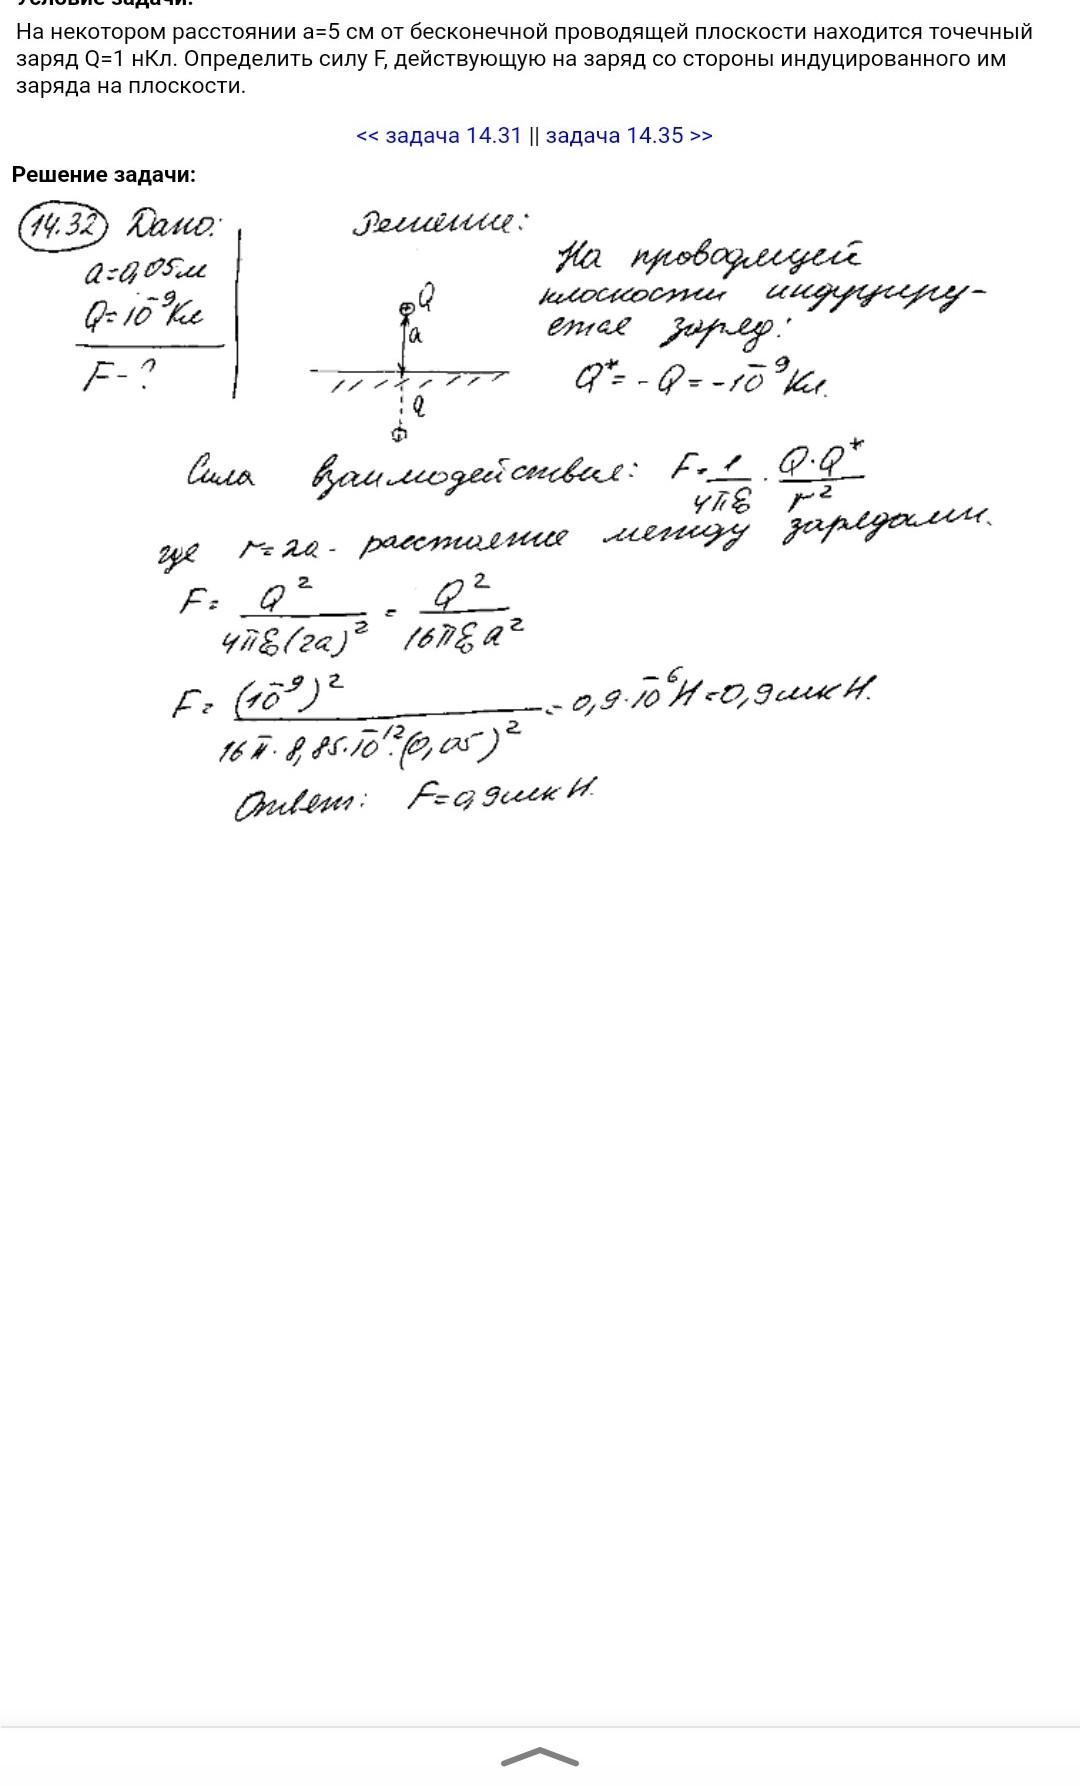 Условие задачи:
На некотором расстоянии a=5 см от бесконечной проводящей плоскости находится точечный
заряд Q=1 нКл. Определить силу F, действующую на заряд со стороны индуцированного им
заряда на плоскости.
<< задача 14.31 || задача 14.35 >>
Решение задачи:
14.32 Дано:
a=0,05м
Q=10⁻⁹Кл
F-?
Решение:
Q
a
a
На проводящей
плоскости индуциру-
ется заряд:
Q*= -Q = -10⁻⁹Кл.
Сила взаимодействия: F = 1/4πε₀ · Q·Q*/r²
где r=2a - расстояние между зарядами.
F = Q²/4πε₀(2a)² = Q²/16πε₀a²
F = (10⁻⁹)²/16π·8,85·10⁻¹²·(0,05)² = 0,9·10⁻⁶Н=0,9мкН.
Ответ: F=0,9мкН.